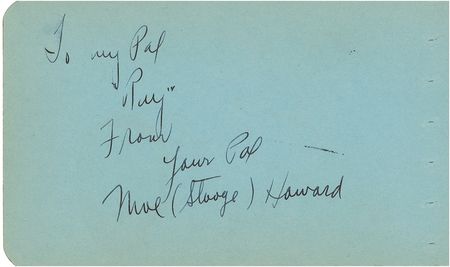 To my Pal
"Ray"
From
Your Pal
Moe (Stooge) Howard